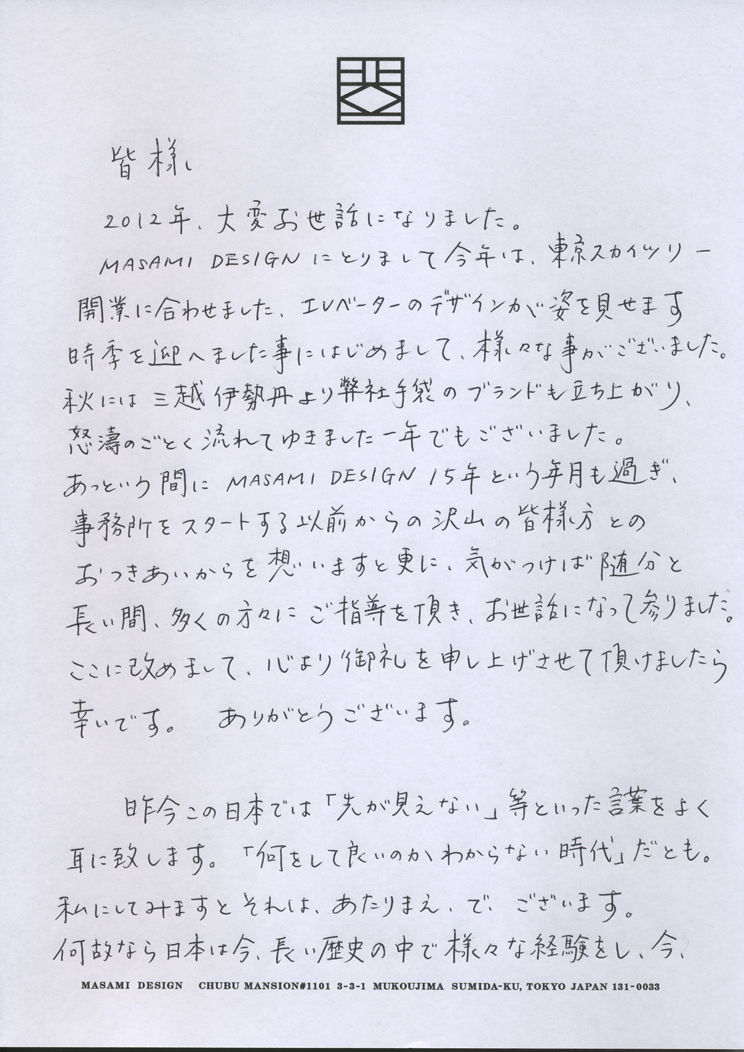 皆様、
2012年、大変お世話になりました。
MASAMI DESIGNにとりまして今年は、東京スカイツリー
開業に合わせました、エレベーターのデザインが姿を見せます
時季を迎へました事にはじめまして、様々な事がございました。
秋には三越伊勢丹より弊社手袋のブランドも立ち上がり、
怒濤のごとく流れてゆきました一年でもございました。
あっという間に MASAMI DESIGN 15年という年月も過ぎ、
事務所をスタートする以前からの沢山の皆様方との
おつきあいからを想いますと更に、気がつけば随分と
長い間、多くの方々にご指導を頂き、お世話になって参りました。
ここに改めまして、心より御礼を申し上げさせて頂けましたら
幸いです。 ありがとうございます。
昨今この日本では「先が見えない」等といった言葉をよく
耳に致します。「何をして良いのかわからない時代」だとも。
私にしてみますとそれは、あたりまえ、で、ございます。
何故なら日本は今、長い歴史の中で様々な経験をし、今、
MASAMI DESIGN CHUBU MANSION#1101 3-3-1 MUKOUJIMA SUMIDA-KU, TOKYO JAPAN 131-0033